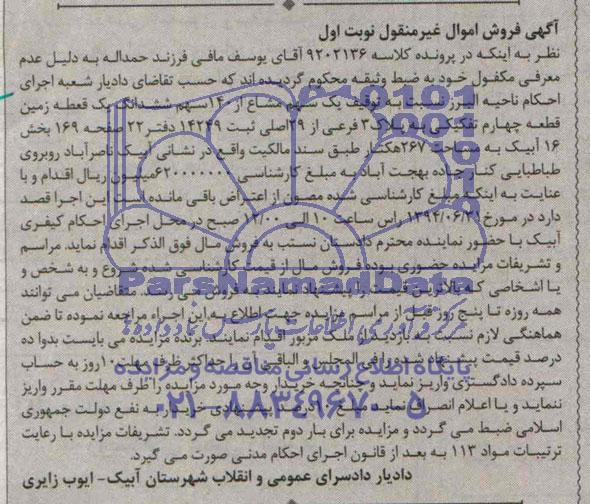 آگهی فروش اموال غیرمنقول نوبت اول
نظر به اینکه در پرونده کلاسه ۹۲۰۲۱۳۶ آقای یوسف مافی فرزند حمداله به دلیل عدم
معرفی مکفول خود به ضبط وثیقه محکوم گردیده اند که حسب تقاضای دادیار شعبه اجرای
احکام ناحیه البرز نسبت به توقیف یک سهم مشاع از ۱۴۰سهم ششدانگ یک قطعه زمین
قطعه چهارم تفکیکی به پلاک۳ فرعی از ۲۹اصلی ثبت ۱۴۲۴۹ دفتر۲۲ صفحه ۱۶۹ بخش
۱۶ آبیک به مساحت ۲۶۷هکتار طبق سند مالکیت واقع در نشانی آبیک ناصرآباد روبروی
طباطبایی کنار جاده بهجت آباد به مبلغ کارشناسی میلیون ریال اقدام و با
عنایت به اینکه مبلغ کارشناسی شده مصون از اعتراض باقی مانده است این اجرا قصد
دارد در مورخ ۱۳۹۴/۰۶/۲۱ راس ساعت ۱۰ الی ۱۲/۰۰ صبح در محل اجرای احکام کیفری
آبیک با حضور نماینده محترم دادستان نسبت به فروش مال فوق الذکر اقدام نماید. مراسم
و تشریفات مزایده حضوری بوده فروش مال از قیمت کارشناسی شده شروع و به شخص و
یا اشخاصی که بالاترین قیمت را پیشنهاد نمایند به فروش می رسد. متقاضیان می توانند
همه روزه تا پنج روز قبل از مراسم مزایده جهت اطلاع به این اجراء مراجعه نموده تا ضمن
هماهنگی لازم نسبت به بازدید از ملک مزبور اقدام نمایند. برنده مزایده می بایست بدوا ده
درصد قیمت پیشنهاد شده را فی المجلس و الباقی آن را حداکثر ظرف مهلت ۱۰روز به حساب
سپرده دادگستری واریز نماید و چنانچه خریدار وجه مورد مزایده را ظرف مهلت مقرر واریز
ننماید و یا اعلام انصراف نماید مبلغ ۱۰ درصد پیشنهادی خریدار به نفع دولت جمهوری
اسلامی ضبط می گردد و مزایده برای بار دوم تجدید می گردد. تشریفات مزایده با رعایت
ترتیبات مواد ۱۱۳ به بعد از قانون اجرای احکام مدنی صورت می گیرد.
دادیار دادسرای عمومی و انقلاب شهرستان آبیک- ایوب زایری
ParsNamadData
مرکز فرآوری اطلاعات پارس نماد داده ها
پایگاه اطلاع رسانی مناقصه و مزایده
۰۲۱-۸۸۳۴۹۶۷۰-۵